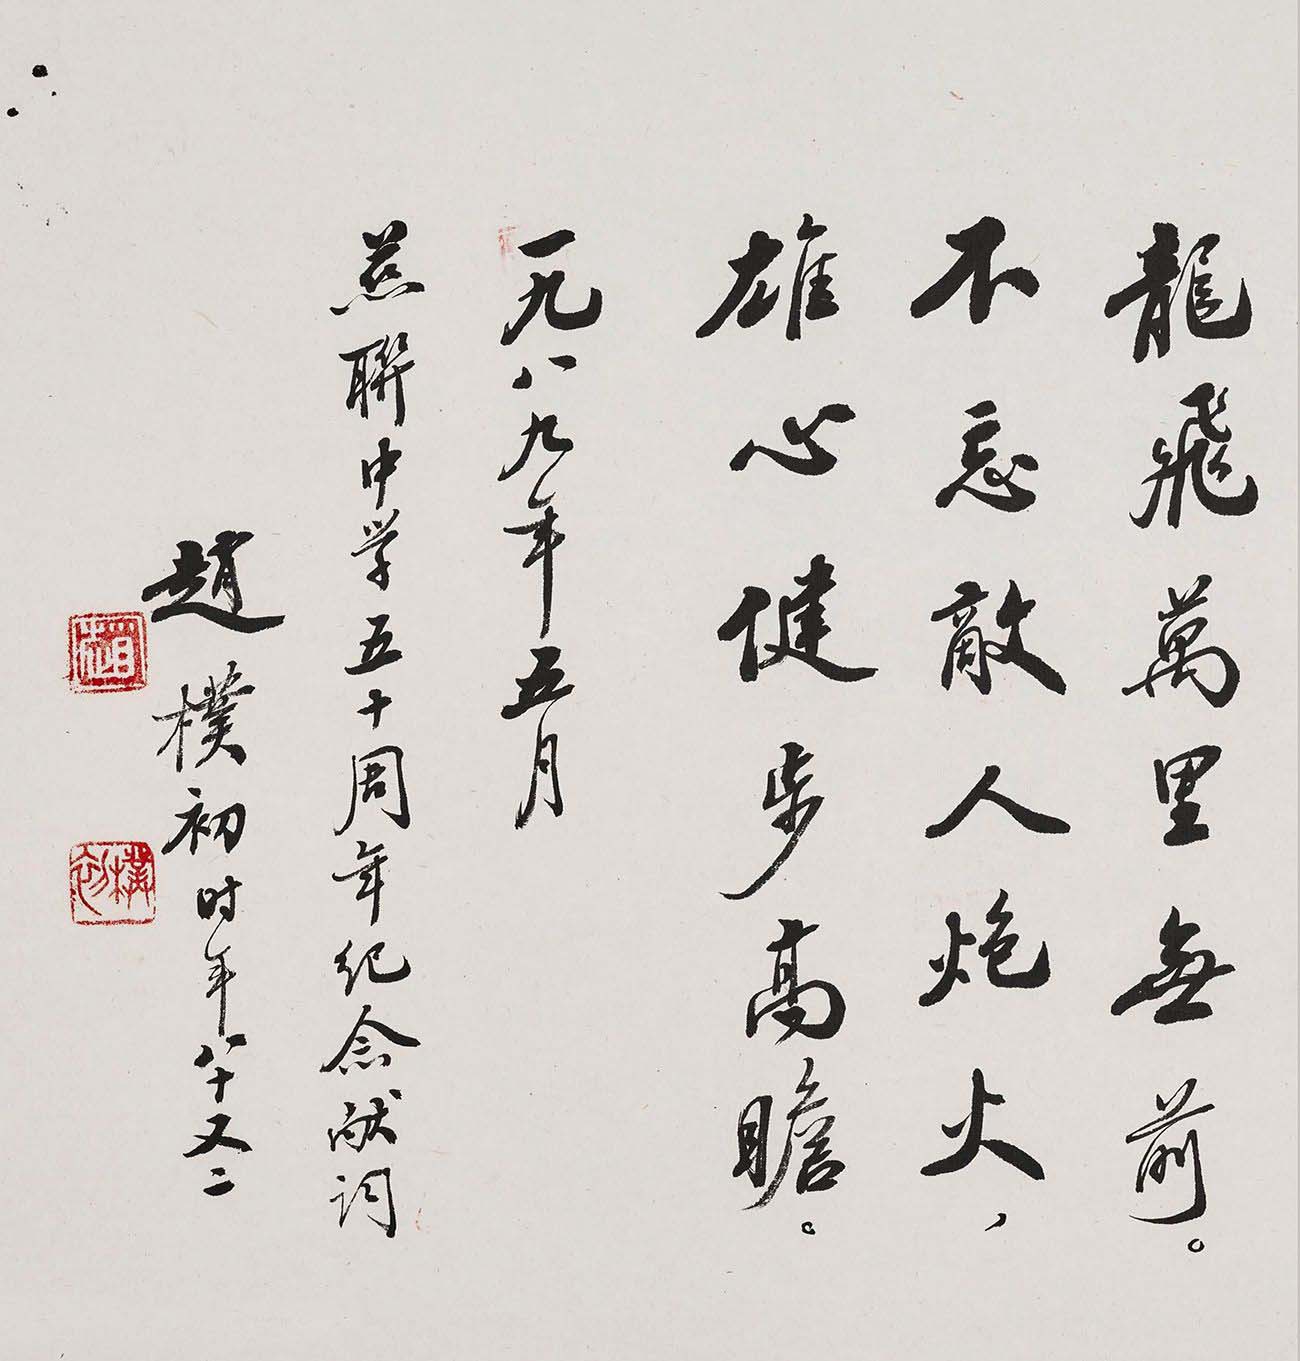 龍飛萬里無前。
不忘敵人炮火，
雄心健步高瞻。
一九八九年五月
慈聯中学五十周年纪念献词
趙樸初时年八十又二
趙
樸初